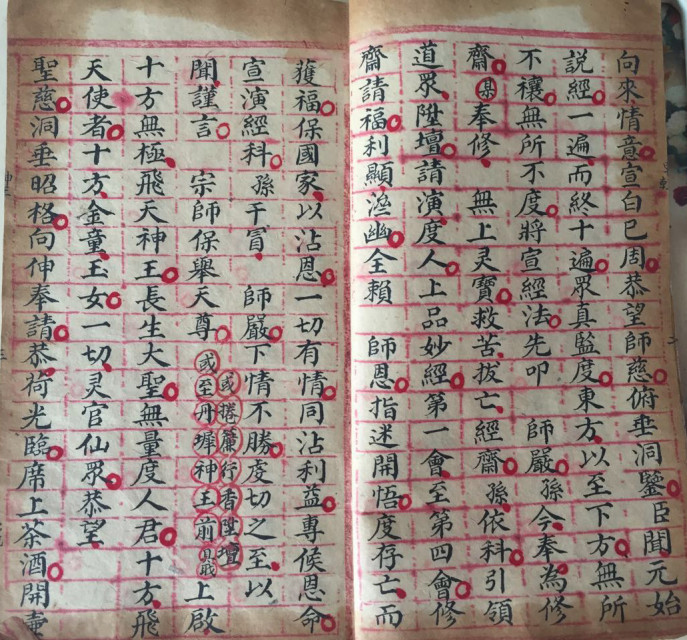 向來情意宣白已周恭望師慈俯垂洞鑒臣聞元始
說經一遍而終十遍眾真監度東方以至下方無所
不禳無所不度將宣經法先叩 師嚴孫今奉為修
齋某奉修 無上灵寶救苦拔亡經齋孫依科引領
道眾陞壇請演度人上品妙經第一會至第四會修
齋請福利顯濟幽全賴 師恩指迷開悟度存亡而
獲福保國家以沾恩一切有情同沾利益專候恩命
宣演經科孫干冐 師嚴下情不勝虔切之至以
聞謹言 宗師保舉天尊 或捲簾行香陞壇 或至丹墀神王前跪 上啟
十方無極飛天神王長生大聖無量度人君十方飛
天使者十方金童玉女一切灵官仙眾恭望
聖慈洞垂昭格向伸奉請恭荷光臨席上茶酒開壷